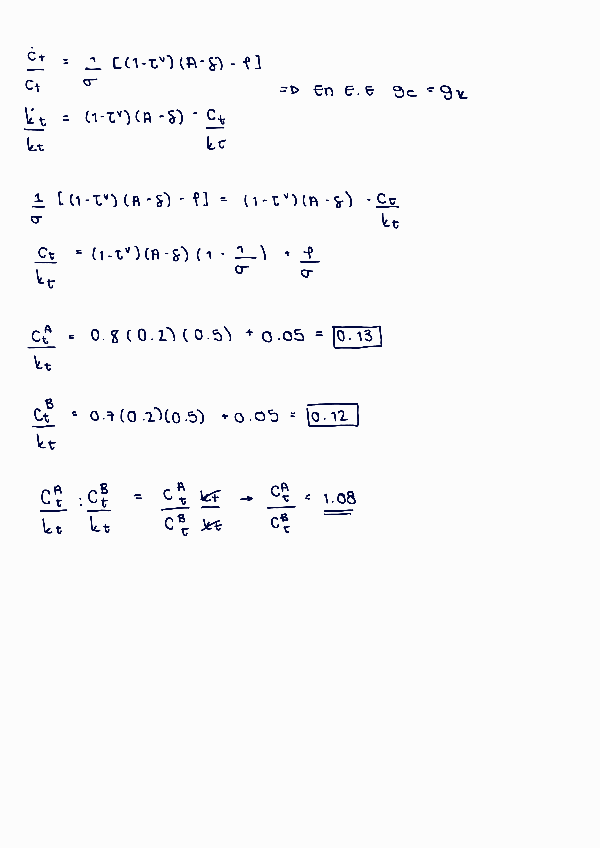 Ċt/Ct = 1/σ [(1-τʸ)(A-δ) - ρ]
=> En E.E gc = gk
k̇t/kt = (1-τʸ)(A-δ) - Ct/kt
1/σ [(1-τʸ)(A-δ) - ρ] = (1-τʸ)(A-δ) - Ct/kt
Ct/kt = (1-τʸ)(A-δ)(1 - 1/σ) + ρ/σ
Ct^A/kt = 0.8(0.2)(0.5) + 0.05 = 0.13
Ct^B/kt = 0.7(0.2)(0.5) + 0.05 = 0.12
Ct^A/kt : Ct^B/kt = Ct^A/Ct^B kt/kt → Ct^A/Ct^B = 1.08